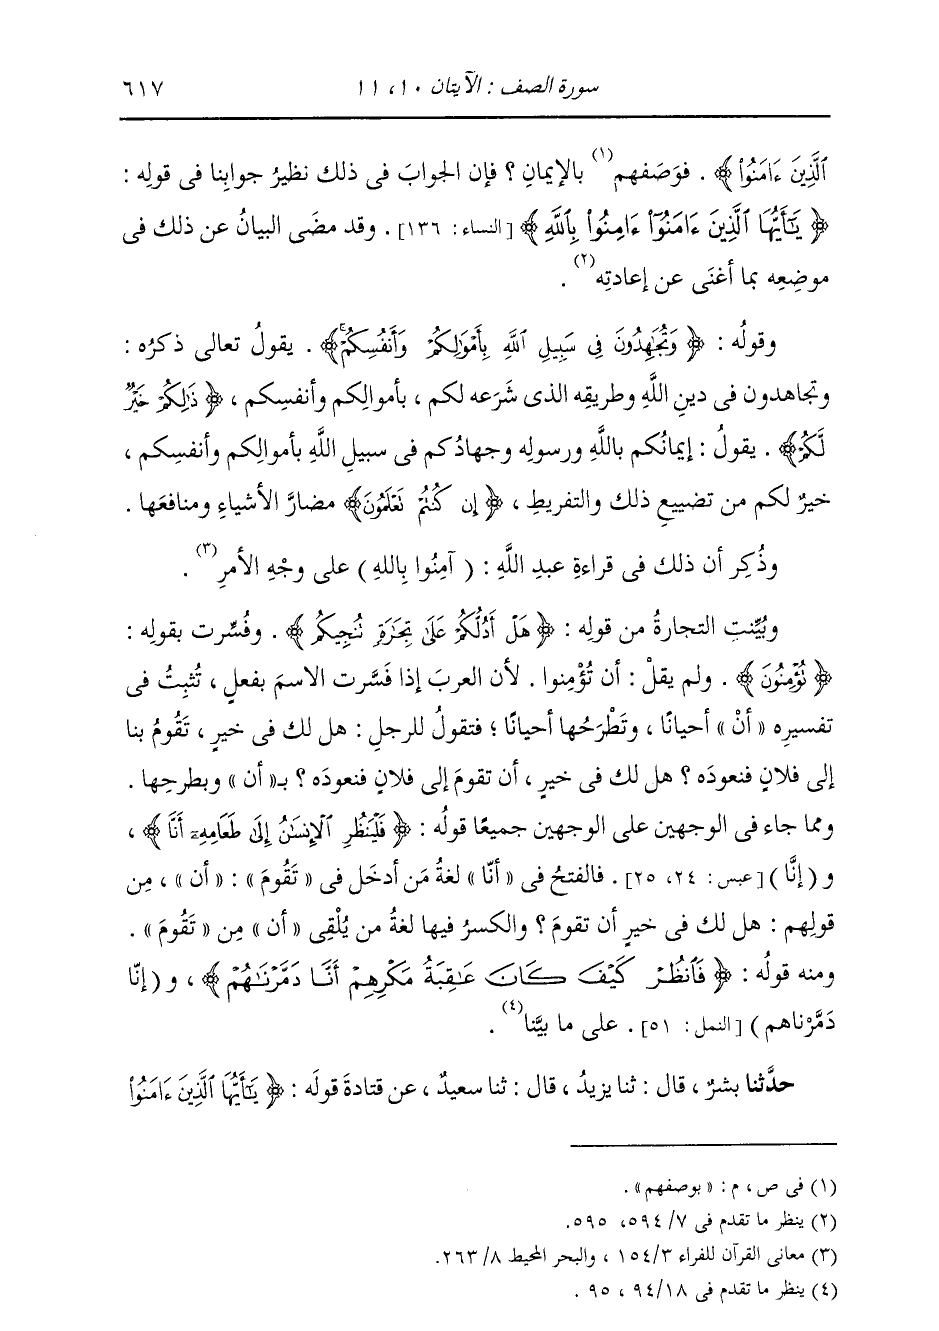 سورة الصف : الآيتان ١٠، ١١ ٦١٧
ٱلَّذِينَ ءَامَنُوا۟ ﴾ . فوَصَفهم(١) بالإيمانِ ؟ فإن الجوابَ فى ذلك نظيرُ جوابِنا فى قولِه :
﴿ يَٰٓأَيُّهَا ٱلَّذِينَ ءَامَنُوٓا۟ ءَامِنُوا۟ بِٱللَّهِ ﴾ [النساء: ١٣٦] . وقد مضَى البيانُ عن ذلك فى
موضِعِه بما أغنَى عن إعادتِه(٢) .
وقولُه : ﴿ وَتُجَٰهِدُونَ فِى سَبِيلِ ٱللَّهِ بِأَمْوَٰلِكُمْ وَأَنفُسِكُمْ ۚ﴾ . يقولُ تعالى ذكرُه :
وتجاهدون فى دينِ اللَّهِ وطريقِه الذى شرَعه لكم ، بأموالِكم وأنفسِكم ، ﴿ ذَٰلِكُمْ خَيْرٌ
لَّكُمْ﴾ . يقولُ : إيمانُكم باللَّهِ ورسولِه وجهادُكم فى سبيلِ اللَّهِ بأموالِكم وأنفسِكم ،
خيرٌ لكم من تضييعِ ذلك والتفريطِ ، ﴿ إِن كُنتُمْ تَعْلَمُونَ﴾ مضارَّ الأشياءِ ومنافعَها .
وذُكِر أن ذلك فى قراءةِ عبدِ اللَّهِ : ( آمِنُوا بِاللهِ ) على وجْهِ الأمرِ(٣) .
وبُيِّنتِ التجارةُ من قولِه : ﴿ هَلْ أَدُلُّكُمْ عَلَىٰ تِجَٰرَةٍ تُنجِيكُم ﴾ . وفُسِّرت بقولِه :
﴿ تُؤْمِنُونَ ﴾ . ولم يقلْ : أن تُؤْمِنوا . لأن العربَ إذا فسَّرت الاسمَ بفعلٍ ، تُثبِتُ فى
تفسيرِه « أنْ » أحيانًا ، وتَطْرَحُها أحيانًا ؛ فتقولُ للرجلِ : هل لك فى خيرٍ ، تَقُومُ بنا
إلى فلانٍ فنعودَه ؟ هل لك فى خيرٍ ، أن تقومَ إلى فلانٍ فنعودَه ؟ بـ« أن » وبطرحِها .
ومما جاء فى الوجهين على الوجهين جميعًا قولُه : ﴿ فَلْيَنظُرِ ٱلْإِنسَٰنُ إِلَىٰ طَعَامِهِۦٓ أَنَّا ﴾ ،
و ( إنَّا ) [عبس: ٢٤، ٢٥] . فالفتحُ فى « أنّا » لغةُ مَن أدخَل فى « تَقُومَ » : « أن » ، مِن
قولِهم : هل لك فى خيرٍ أن تقومَ ؟ والكسرُ فيها لغةُ من يُلْقِى « أن » مِن « تَقُومَ » .
ومنه قولُه : ﴿ فَٱنظُرْ كَيْفَ كَانَ عَٰقِبَةُ مَكْرِهِمْ أَنَّا دَمَّرْنَٰهُمْ ﴾ ، و (إنّا
دَمَّرْناهم) [النمل: ٥١] . على ما بيَّنا(٤) .
حدَّثنا بشرٌ ، قال : ثنا يزيدُ ، قال : ثنا سعيدٌ ، عن قتادةَ قولَه : ﴿ يَٰٓأَيُّهَا ٱلَّذِينَ ءَامَنُوا۟
(١) فى ص ، م : « بوصفهم» .
(٢) ينظر ما تقدم فى ٧/ ٥٩٤، ٥٩٥.
(٣) معانى القرآن للفراء ١٥٤/٣ ، والبحر المحيط ٨/ ٢٦٣.
(٤) ينظر ما تقدم فى ٩٤/١٨ ، ٩٥ .